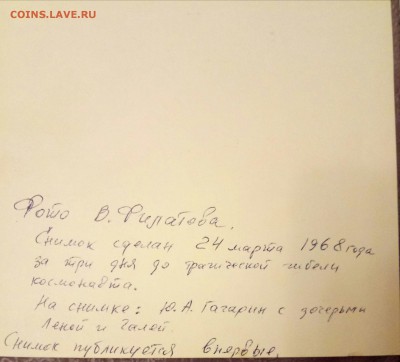 COINS.LAVE.RU
Фото В. Филатова.
Снимок сделан 24 марта 1968 года
за три дня до трагической гибели
космонавта.
На снимке: Ю.А. Гагарин с дочерьми
Леной и Галей.
Снимок публикуется впервые.